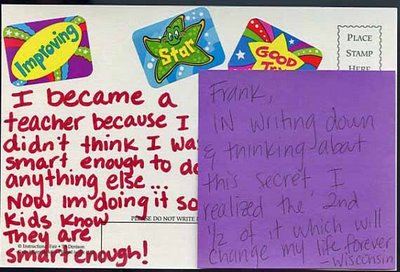 Improving
Star
GOOD
PLACE
STAMP
HERE
I became a
teacher because I
didn't think I wa
smart enough to do
anything else...
Now im doing it so
Kids Know
They are
smart enough!
PLEASE DO NOT WRITE
© Instructional Fair
Denison
Frank,
IN writing down
& thinking about
this secret I
realized the 2nd
1/2 of it which will
change my life forever
-Wisconsin